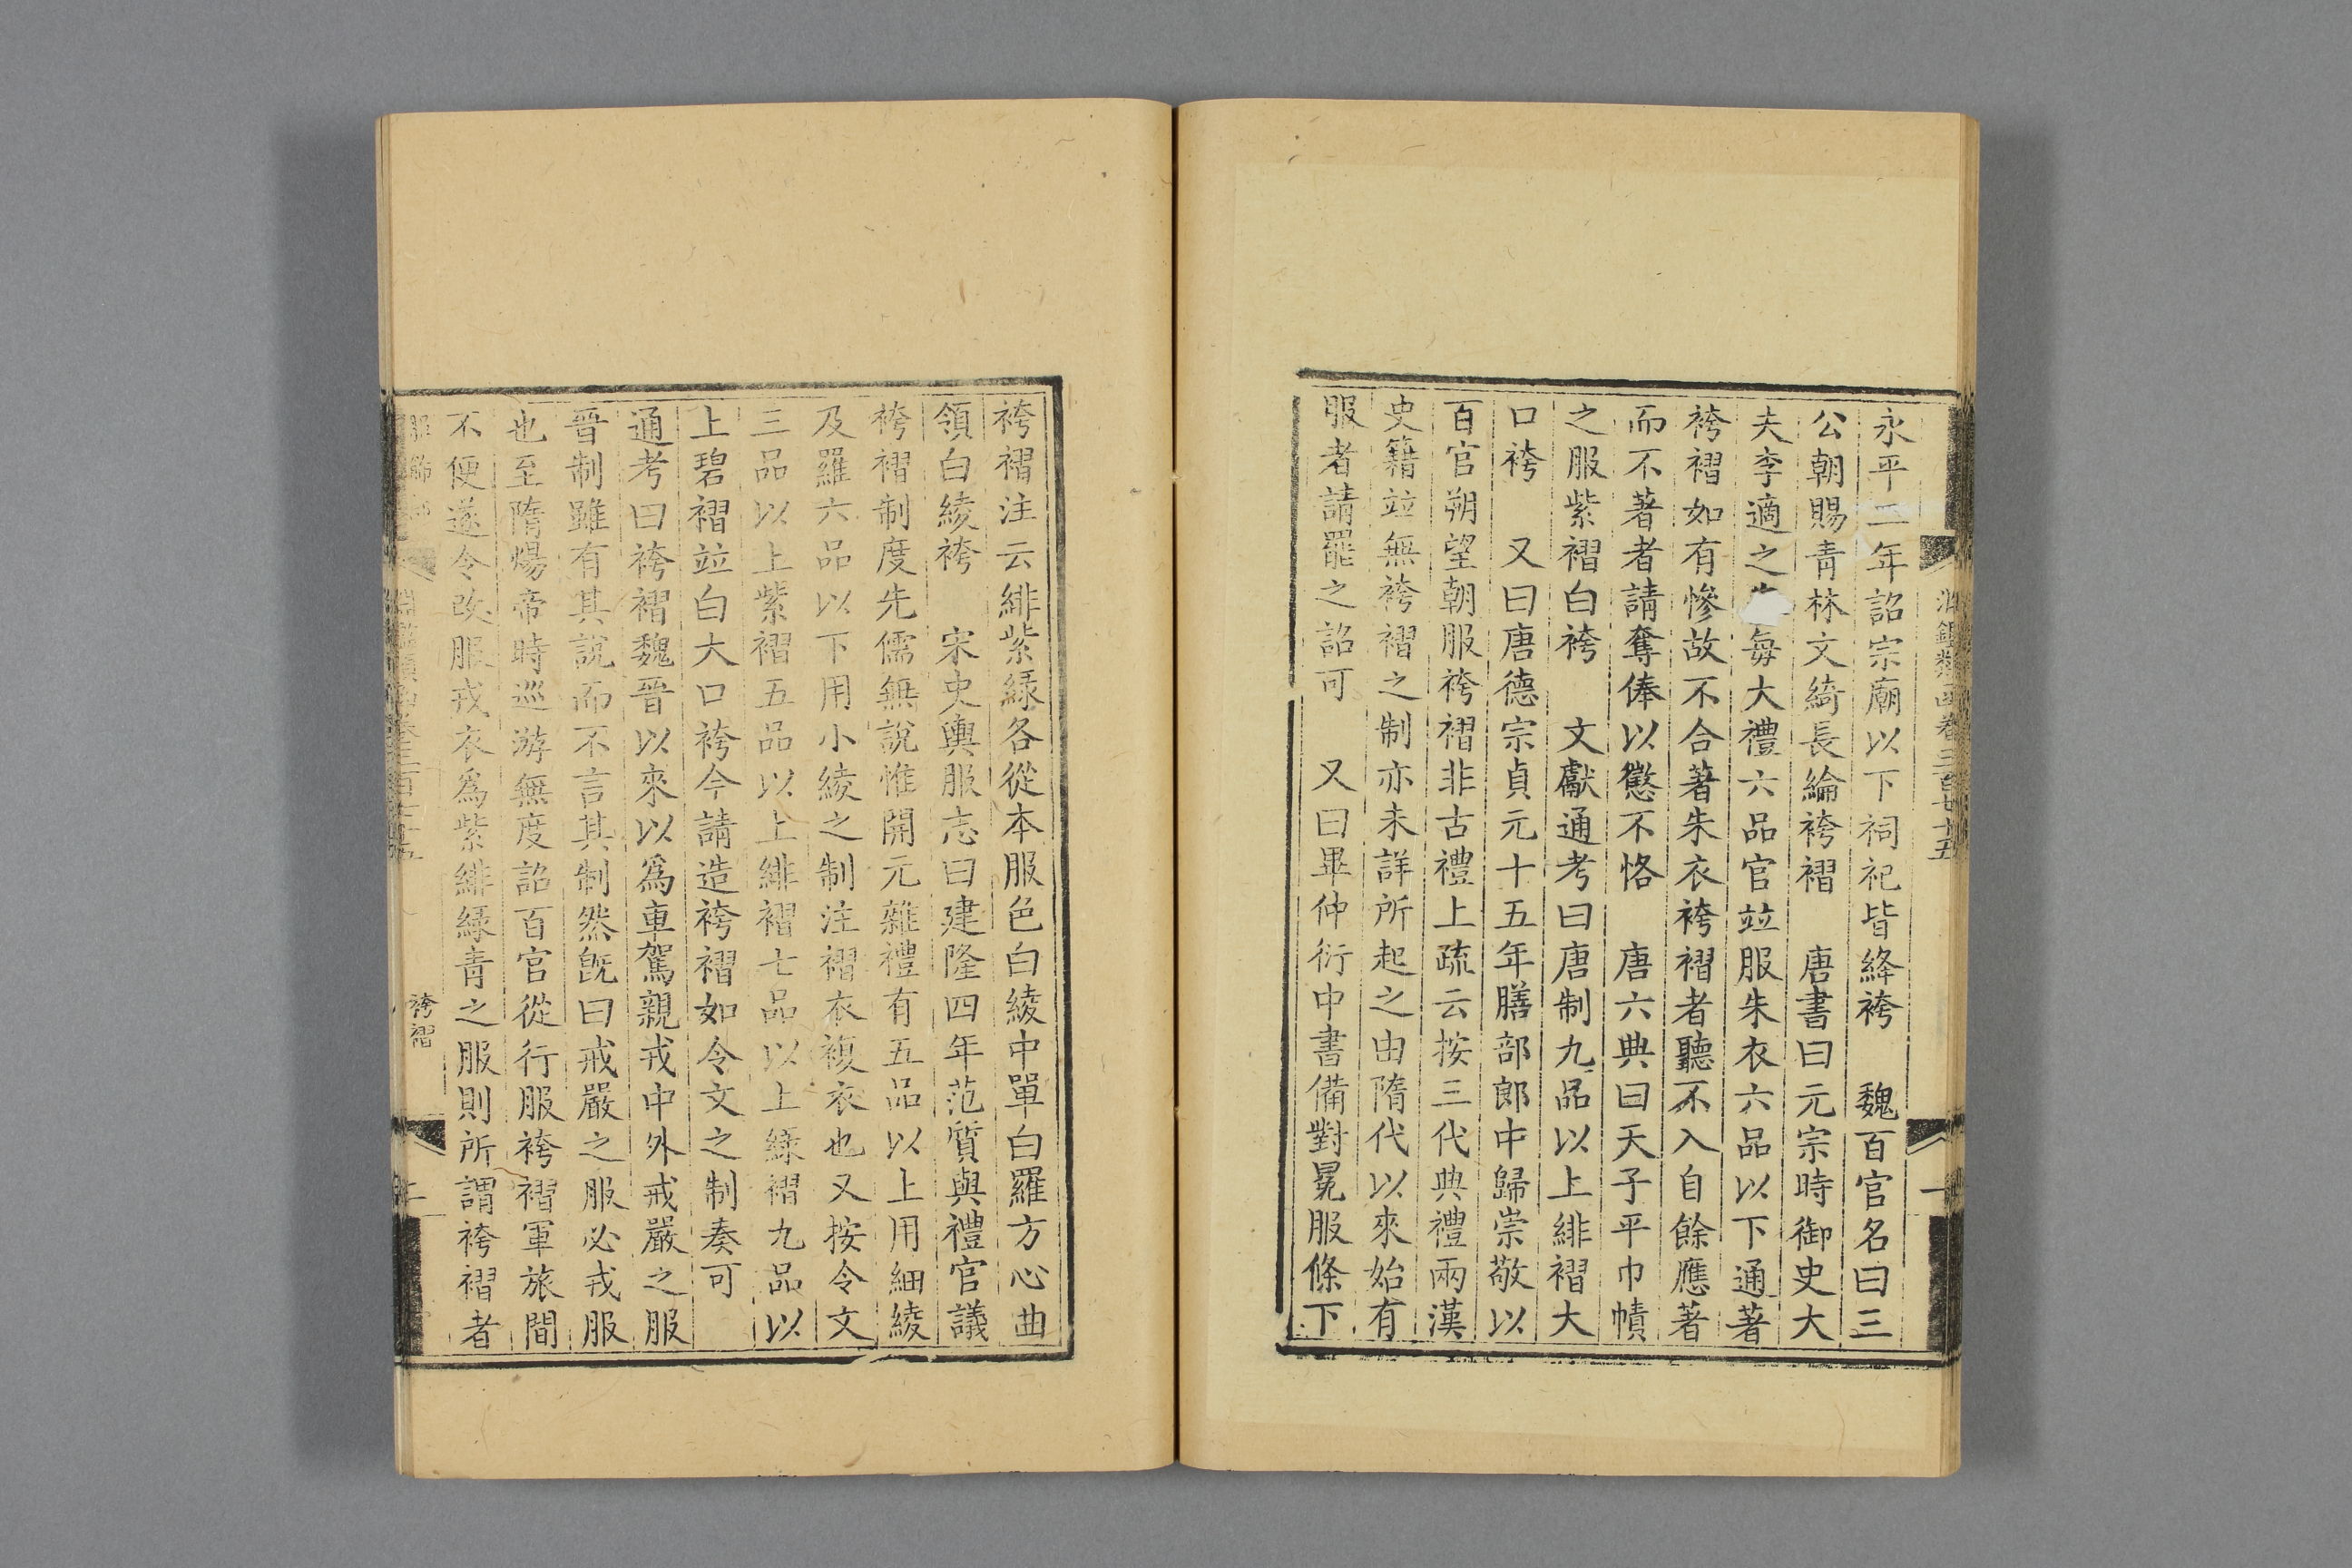 永平二年詔宗廟以下祠祀皆絳袴　魏百官名曰三
公朝賜青林文綺長綸袴褶　唐書曰元宗時御史大
夫李適之每大禮六品官竝服朱衣六品以下通著
袴褶如有慘故不合著朱衣袴褶者聽不入自餘應著
而不著者請奪俸以懲不恪　唐六典曰天子平巾幘
之服紫褶白袴　文獻通考曰唐制九品以上緋褶大
口袴　又曰唐德宗貞元十五年膳部郎中歸崇敬以
百官朔望朝服袴褶非古禮上疏云按三代典禮兩漢
史籍竝無袴褶之制亦未詳所起之由隋代以來始有
服者請罷之詔可　又曰畢仲衍中書備對冕服條下
袴褶注云緋紫綠各從本服色白綾中單白羅方心曲
領白綾袴　宋史輿服志曰建隆四年范質與禮官議
袴褶制度先儒無說惟開元雜禮有五品以上用細綾
及羅六品以下用小綾之制注褶衣複衣也又按令文
三品以上紫褶五品以上緋褶七品以上綠褶九品以
上碧褶竝白大口袴今請造袴褶如令文之制奏可
通考曰袴褶魏晉以來以爲車駕親戎中外戒嚴之服
晉制雖有其說而不言其制然既曰戒嚴之服必戎服
也至隋煬帝時巡游無度詔百官從行服袴褶軍旅間
不便遂令改服戎衣爲紫緋綠青之服則所謂袴褶者
袴褶
二